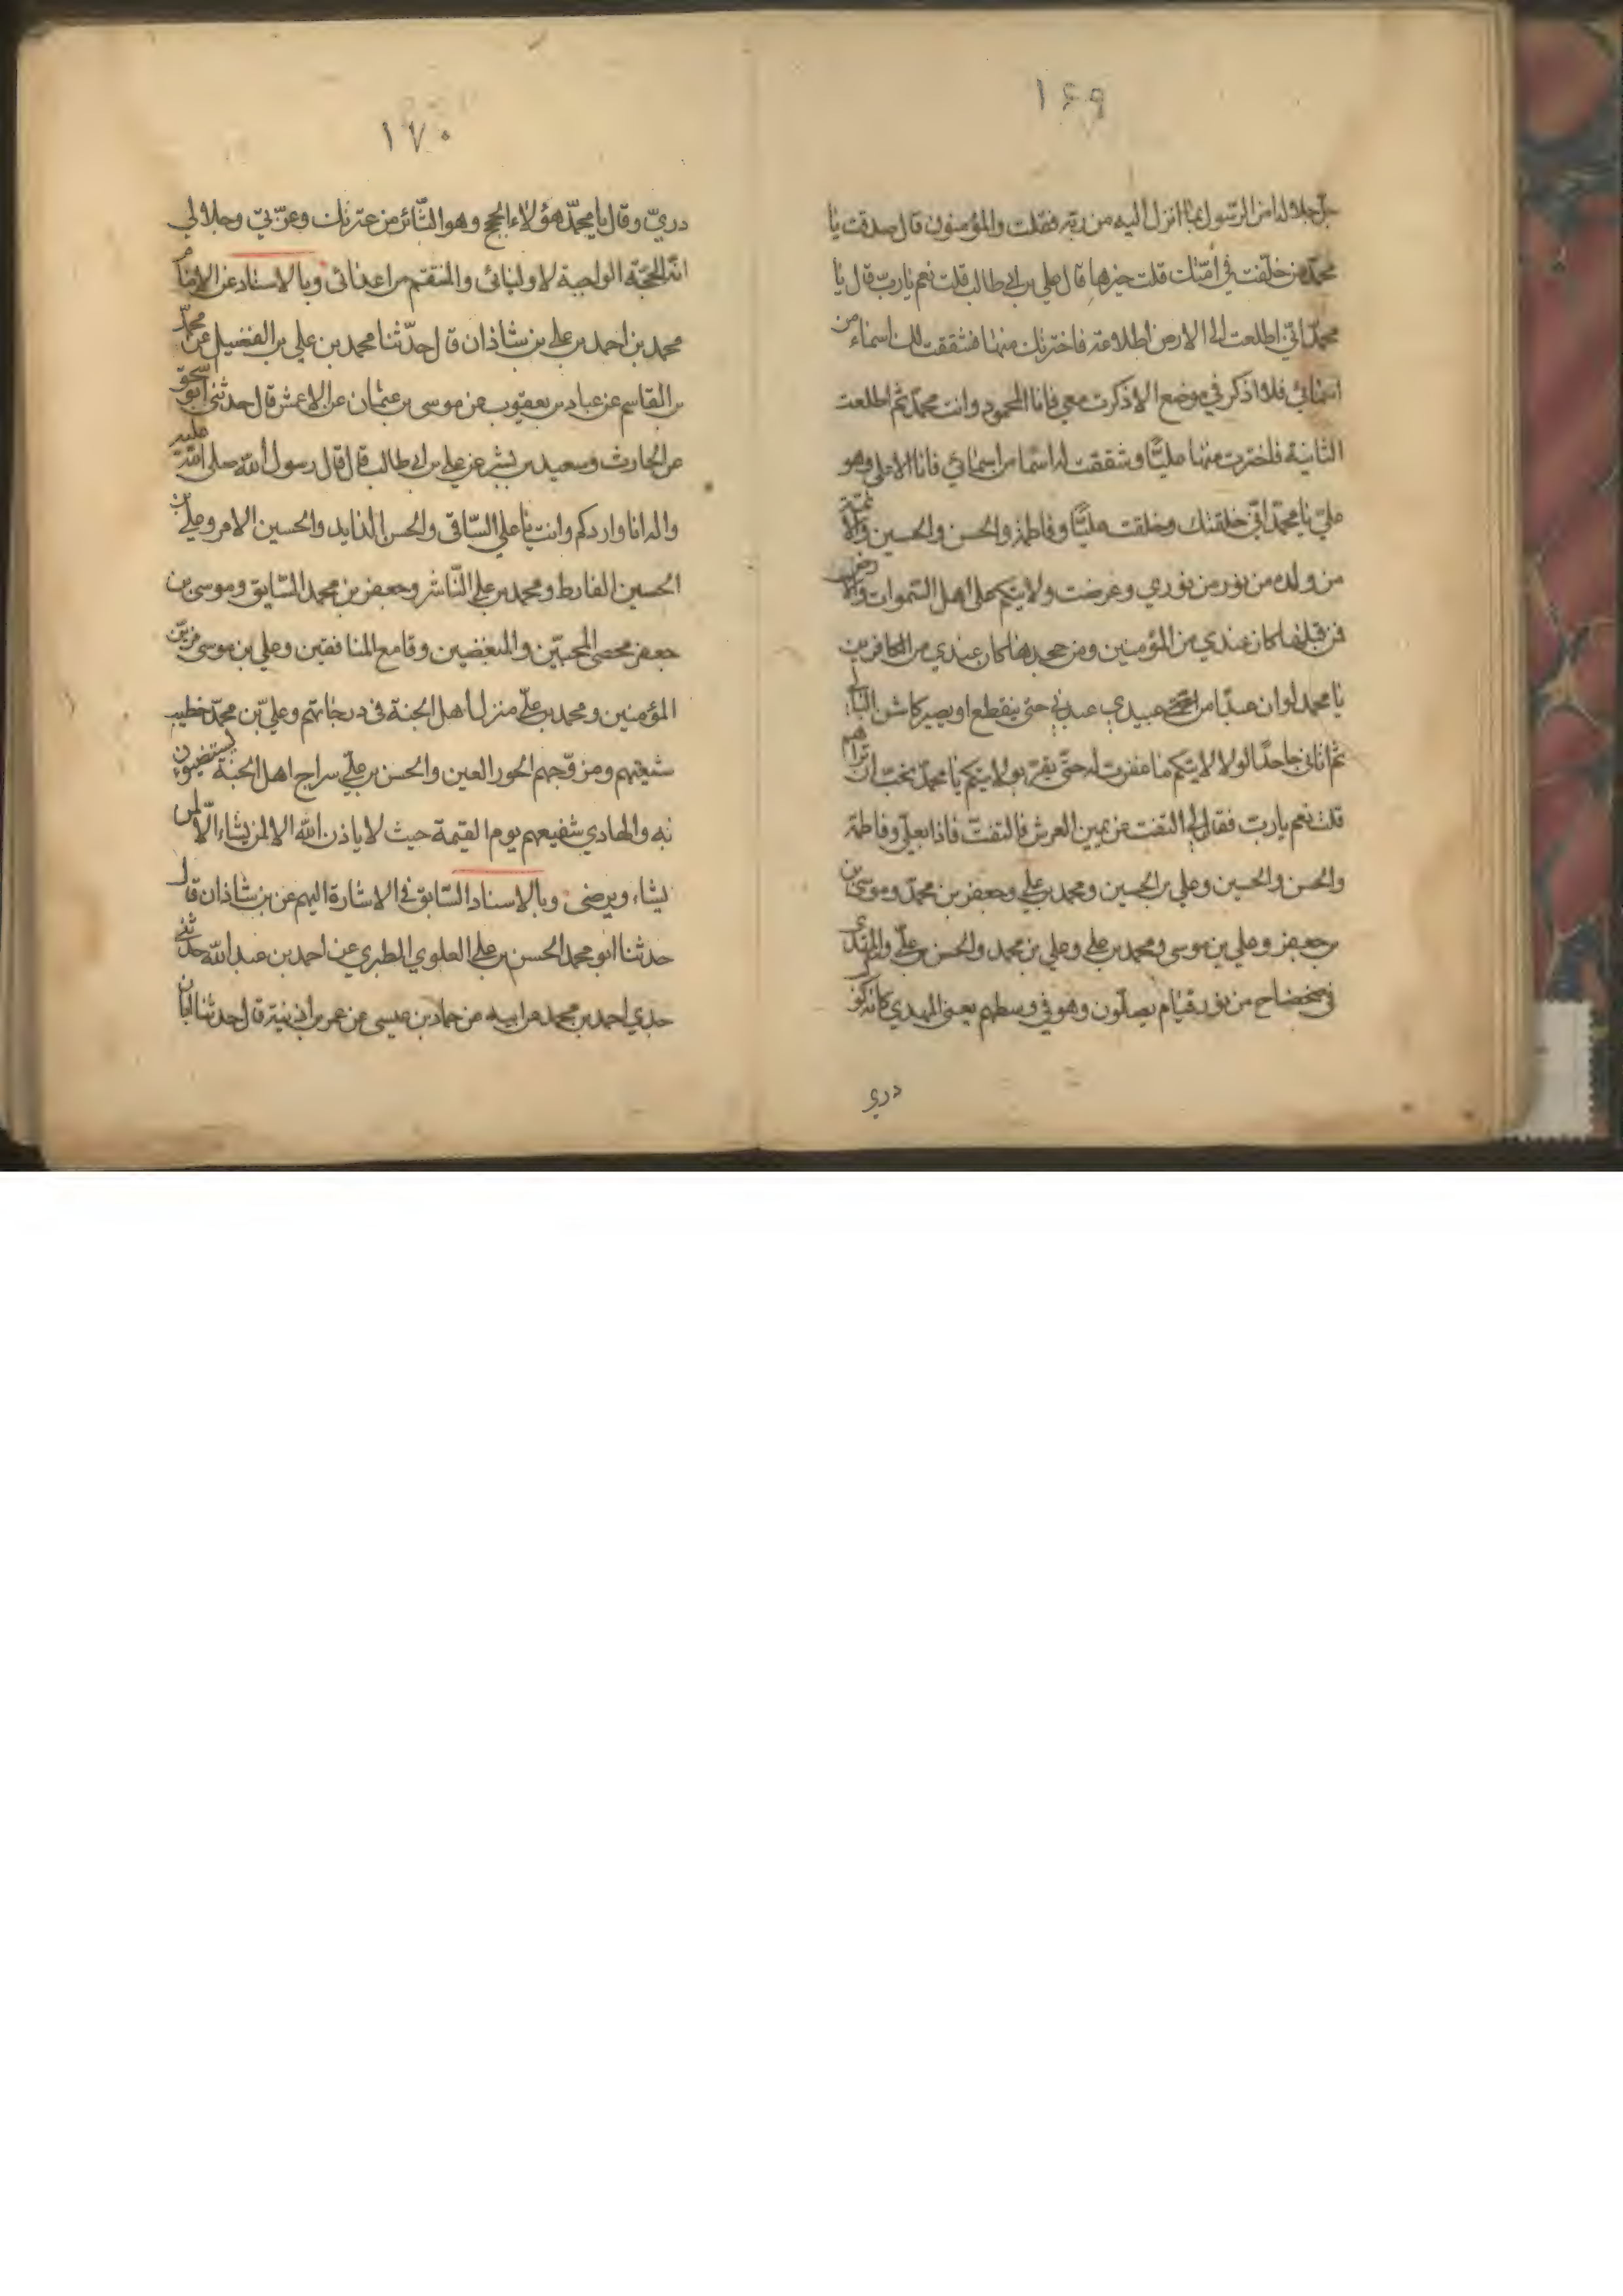 ١۶٩
جل جلاله امن الرسول بما انزل اليه من ربه فقلت والمؤمنون قال صدقت يا
محمد من خلفت في امتك قلت خيرها قال علي بن ابي طالب قلت نعم يا رب قال يا
محمد اني اطلعت الى الارض اطلاعة فاخترتك منها فشققت لك اسماء من
اسمائي فلا اذكر في موضع الا ذكرت معي فانا المحمود وانت محمد ثم اطلعت
الثانية فاخترت منها عليّا وشققت له اسما من اسمائي فانا الاعلى وهو
عليّ يا محمد اني خلقتك وخلقت عليّا وفاطمة والحسن والحسين والائمة
من ولده من نور من نوري وعرضت ولايتكم على اهل السموات والارض
فمن قبلها كان عندي من المؤمنين ومن جحدها كان عندي من الكافرين
يا محمد لو ان عبدا من عبيدي عبدني حتى ينقطع او يصير كالشن البالي
ثم اتاني جاحدا لولايتكم ما غفرت له حتى يقرّ بولايتكم يا محمد تحب ان تراهم
قلت نعم يا ربّ فقال لي التفت عن يمين العرش فالتفتّ فاذا بعليّ وفاطمة
والحسن والحسين وعلي بن الحسين ومحمد بن علي وجعفر بن محمد وموسى بن
بن جعفر وعلي بن موسى ومحمد بن علي وعلي بن محمد والحسن بن عليّ والمهدي
في ضحضاح من نور قيام يصلّون وهو في وسطهم يعني المهدي كانه كوكب
دري
١٧٠
دريّ وقال يا محمدّ هؤلاء الحجج وهو الثّائر من عترتك وعزّتي وجلالي
انّه الحجّة الواجبة لاوليائي والمنتقم من اعدائي وبالاسناد عن الامام
محمد بن احمد بن علي بن شاذان قال حدّثنا محمد بن علي بن الفضيل عن محمدّ
بن القاسم عن عباد بن يعقوب عن موسى بن عثمان عن الاعمش قال حدثني ابو اسحق
عن الحارث وسعيد بن بشر عن علي بن ابي طالب قال قال رسول الله صلى الله عليه
واله انا واردكم وانت يا علي السّاقي والحسن الذايد والحسين الامر وعليّ بن
الحسين الفارط ومحمد بن علي النّاشر وجعفر بن محمد السّايق وموسى بن
جعفر محصي المحبّين والمبغضين وقامع المنافقين وعلي بن موسى مزيّن
المؤمنين ومحمد بن عليّ منزل اهل الجنة في درجاتهم وعليّ بن محمدّ خطيب
شيعتهم ومزوّجهم الحور العين والحسن بن عليّ سراج اهل الجنّة يستضيؤن
به والهادي شفيعهم يوم القيمة حيث لا ياذن الله الا لمن يشاء الّا لمن
يشاء ويرضى وبالاسناد السّابق في الاشارة اليهم عن بن شاذان قال
حدثنا ابو محمد الحسن بن علي العلوي الطبري عن احمد بن عبد الله حدثني
جدي احمد بن محمد عن ابيه عن حماد بن عيسى عن عمر بن اذينة قال حدثنا ابان